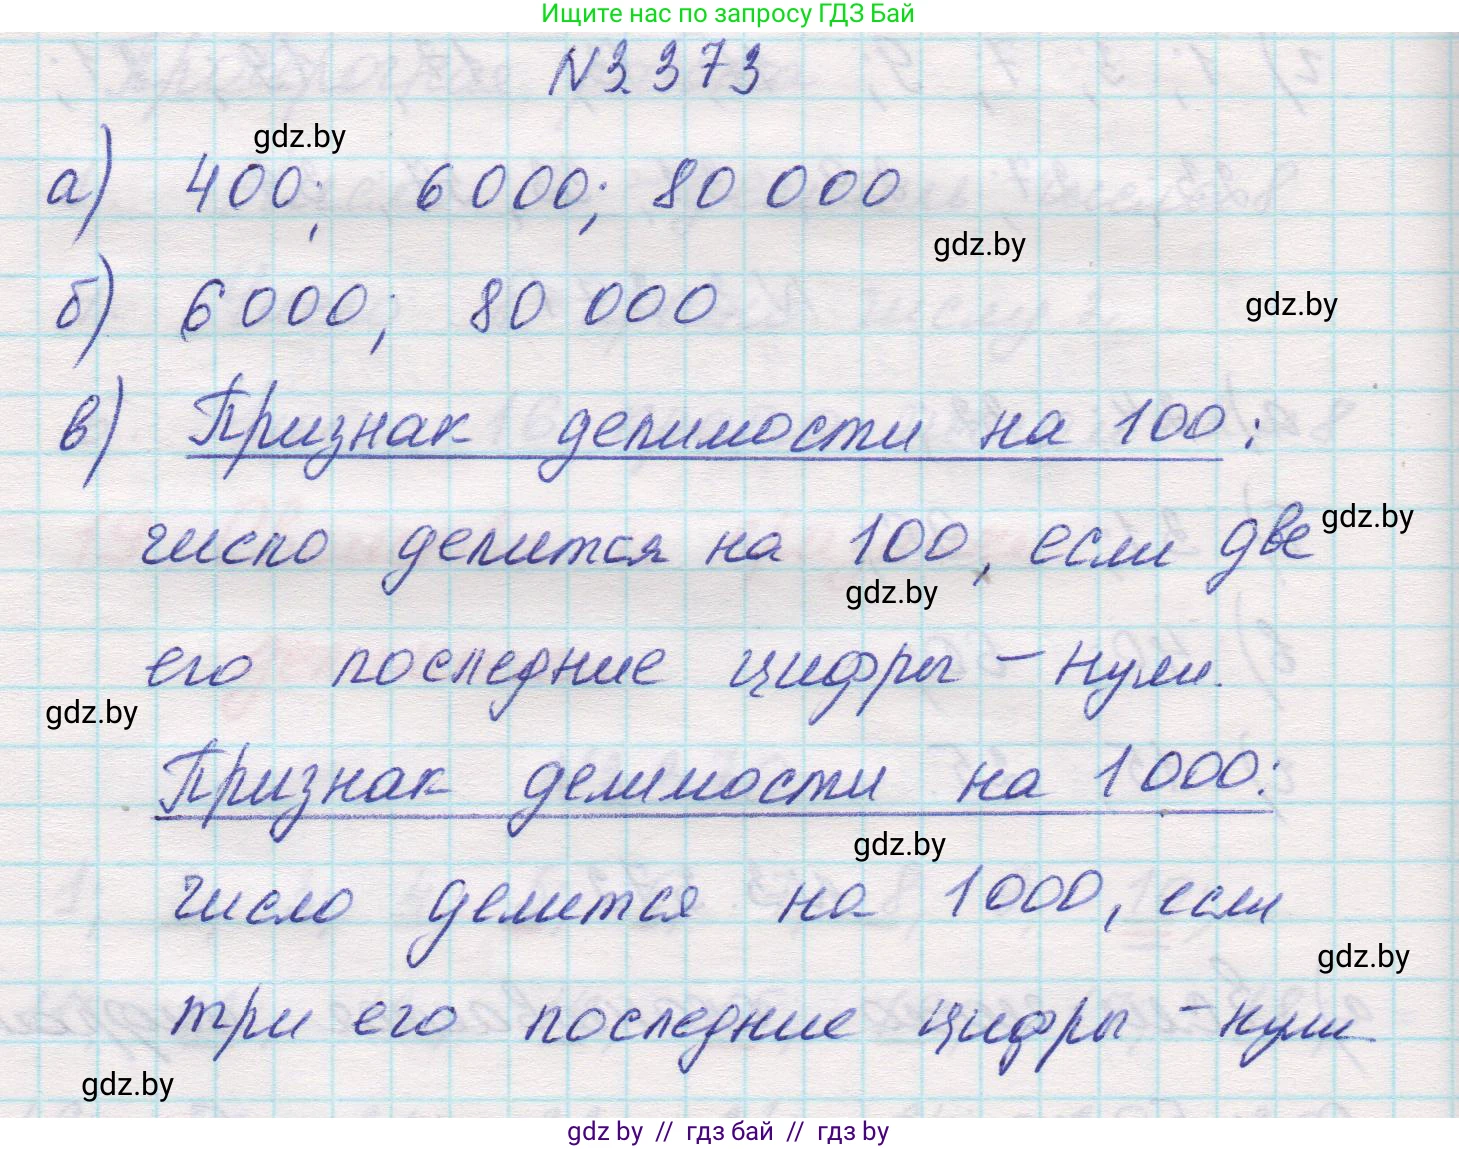 Ищите нас по запросу ГДЗ Бай
N3 373
gdz.by
а) 400; 6000; 80 000
gdz.by
б) 6000; 80 000
gdz.by
в) Признак делимости на 100:
gdz.by
число делится на 100, если две
gdz.by
его последние цифры – нули.
gdz.by
Признак делимости на 1000:
gdz.by
число делится на 1000, если
gdz.by
три его последние цифры – нули
gdz.by
gdz by // гдз бай // гдз by